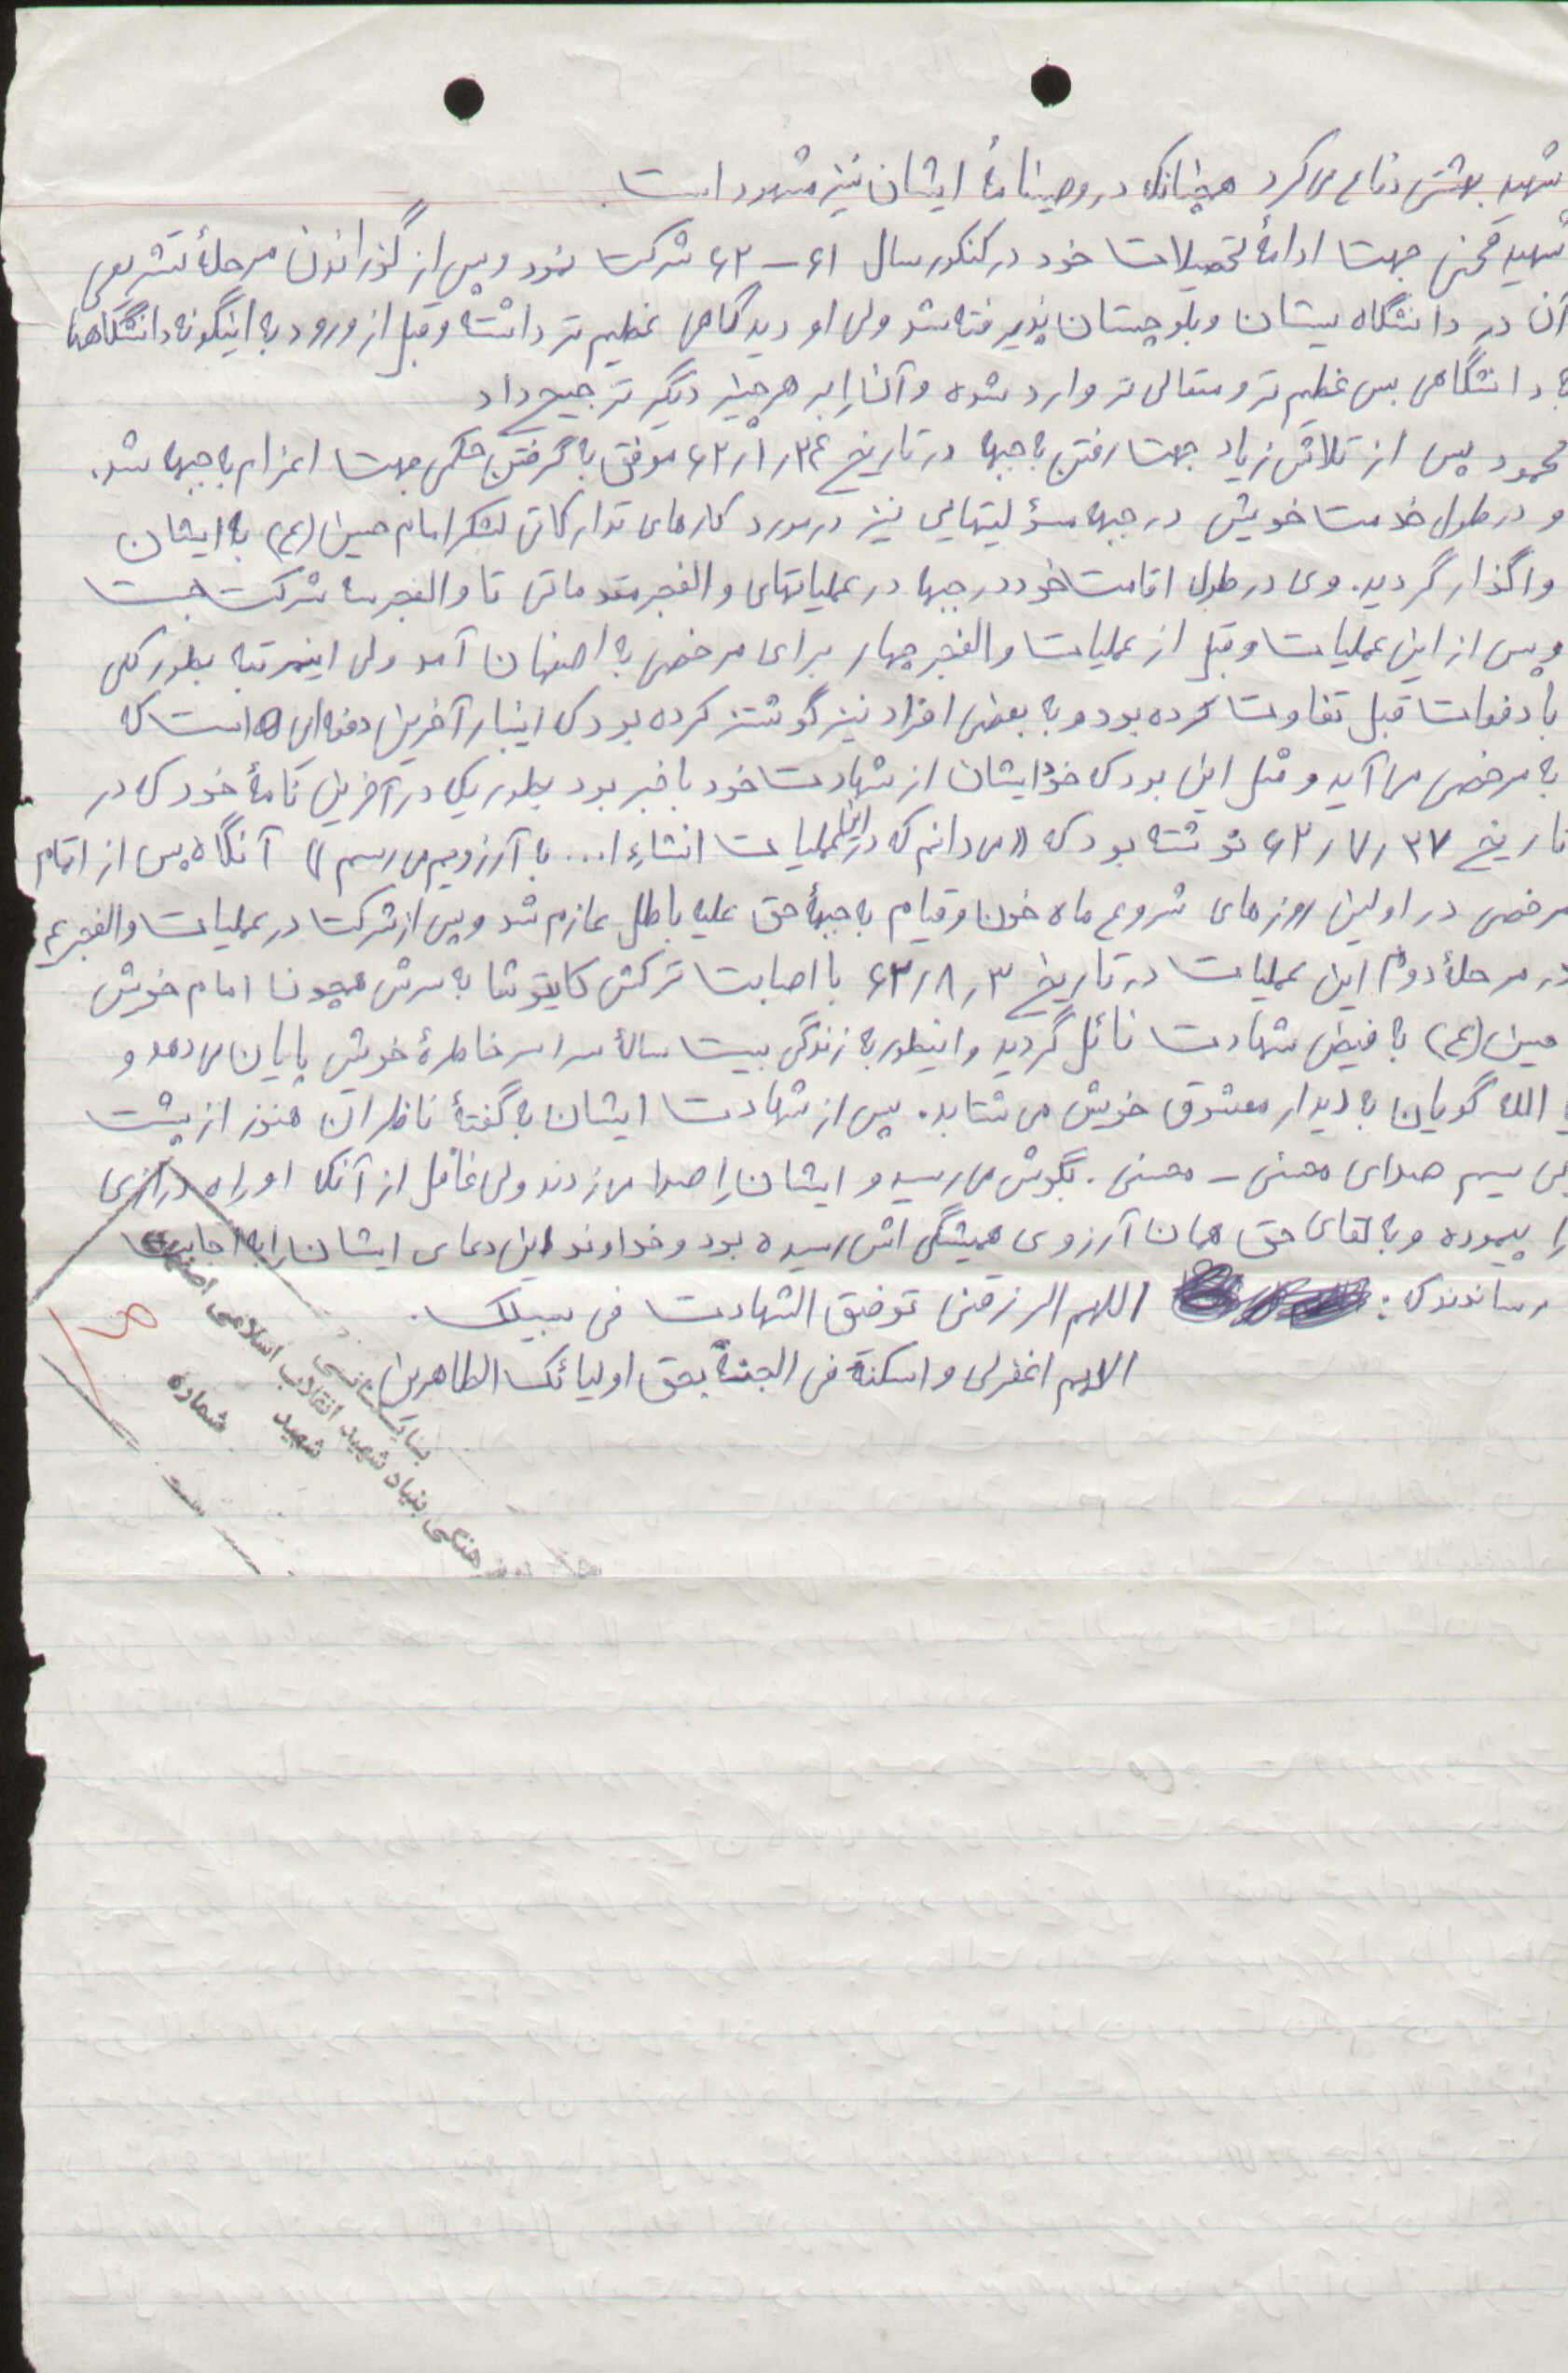 شهید بهشتی دفاع می کرد همچنانکه در وصیتنامهٔ ایشان نیز مشهود است.
شهید محسنی جهت ادامهٔ تحصیلات خود در کنکور سال ۶۱ – ۶۲ شرکت نمود و پس از گذراندن مرحلهٔ تشریحی
آن در دانشگاه سیستان و بلوچستان پذیرفته شد ولی او دیدگاهی عظیم تر داشته و قبل از ورود به اینگونه دانشگاهها
به دانشگاهی بس عظیم تر و متعالی تر وارد شده و آنرا بر هر چیز دیگر ترجیح داد
محمود پس از تلاش زیاد جهت رفتن به جبهه در تاریخ ۶۲٫۱٫۲۴ موفق به گرفتن حکمی جهت اعزام به جبهه شد.
و در طول خدمت خویش در جبهه مسؤلیتهایی نیز در مورد کارهای تدارکاتی لشکر امام حسین (ع) به ایشان
واگذار گردید. وی در طول اقامت خود در جبهه در عملیاتهای والفجر مقدماتی تا والفجر سه شرکت جست
و پس از این عملیات و قبل از عملیات والفجر چهار برای مرخصی به اصفهان آمد ولی اینمرتبه بطور کلی
با دفعات قبل تفاوت کرده بود و به بعضی افراد نیز گوشزد کرده بود که اینبار آخرین دفعه ای است که
به مرخصی می آید و مثل این بود که خود ایشان از شهادت خود باخبر بود بطوریکه در آخرین نامهٔ خود که در
تاریخ ۶۲٫۷٫۲۷ نوشته بود که «می دانم که در این عملیات انشاءا... به آرزویم می رسم» آنگاه پس از اتمام
مرخصی در اولین روزهای شروع ماه خون و قیام به جبههٔ حق علیه باطل عازم شد و پس از شرکت در عملیات والفجر ۴
در مرحلهٔ دوم این عملیات در تاریخ ۶۲٫۸٫۳ با اصابت ترکش کاتیوشا به سرش همچون امام خویش
حسین (ع) به فیض شهادت نائل گردید و اینطور به زندگی بیست سالهٔ سراسر خاطرهٔ خویش پایان می دهد و
یا الله گویان به دیدار معشوق خویش می شتابد. پس از شهادت ایشان به گفتهٔ ناظران هنوز از پشت
بی سیم صدای محسنی – محسنی. بگوش می رسید و ایشان را صدا می زدند ولی غافل از آنکه او راه درازی
را پیموده و به لقای حق همان آرزوی همیشگی اش رسیده بود و خداوند این دعای ایشان را به اجابت
رساندند که: اللهم الرزقنی توفیق الشهادت فی سبیلک.
اللهم اغفرلی و اسکنه فی الجنة بحق اولیائک الطاهرین
فرهنگی بنیاد شهید انقلاب اسلامی اصفهان
شهید
شماره